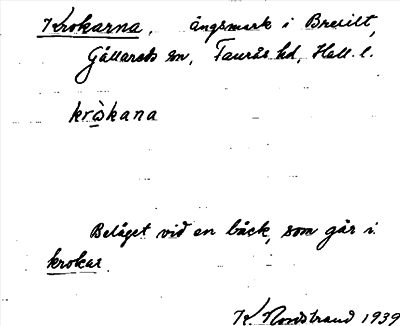 Krokarna, ängsmark i Bresilt,
Gällareds sn, Faurås hd, Hall. l.
kròkana
Beläget vid en bäck, som går i
krokar.
K. Nordstrand 1939